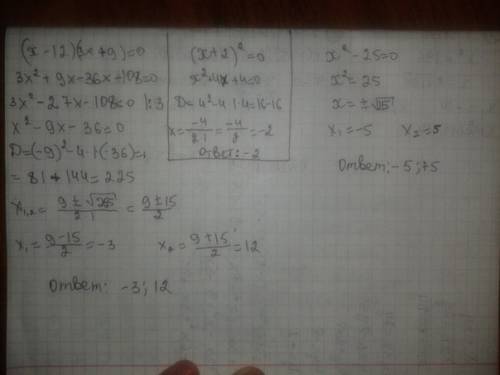 (x-12)(3x+9)=0
3x²+9x-36x+108=0
3x²-27x-108=0 |:3
x²-9x-36=0
D=(-9)²-4·1(-36)=
=81+144=225
x₁,₂=(9±√225)/(2·1)=(9±15)/2
x₁=(9-15)/2=-3 x₂=(9+15)/2=12
Ответ: -3; 12
(x+2)²=0
x²+4x+4=0
D=4²-4·1·4=16-16
x=(-4)/(2·1)=(-4)/2=-2
Ответ: -2
x²-25=0
x²=25
x=±√25
x₁=-5 x₂=5
Ответ: -5; +5